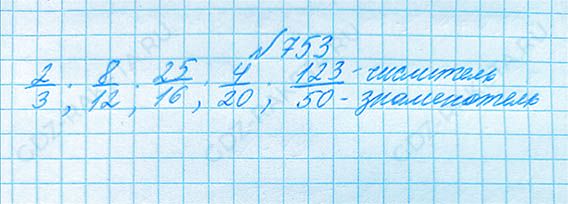 № 753
2/3; 8/12; 25/16; 4/20; 123/50 - числитель
- знаменатель